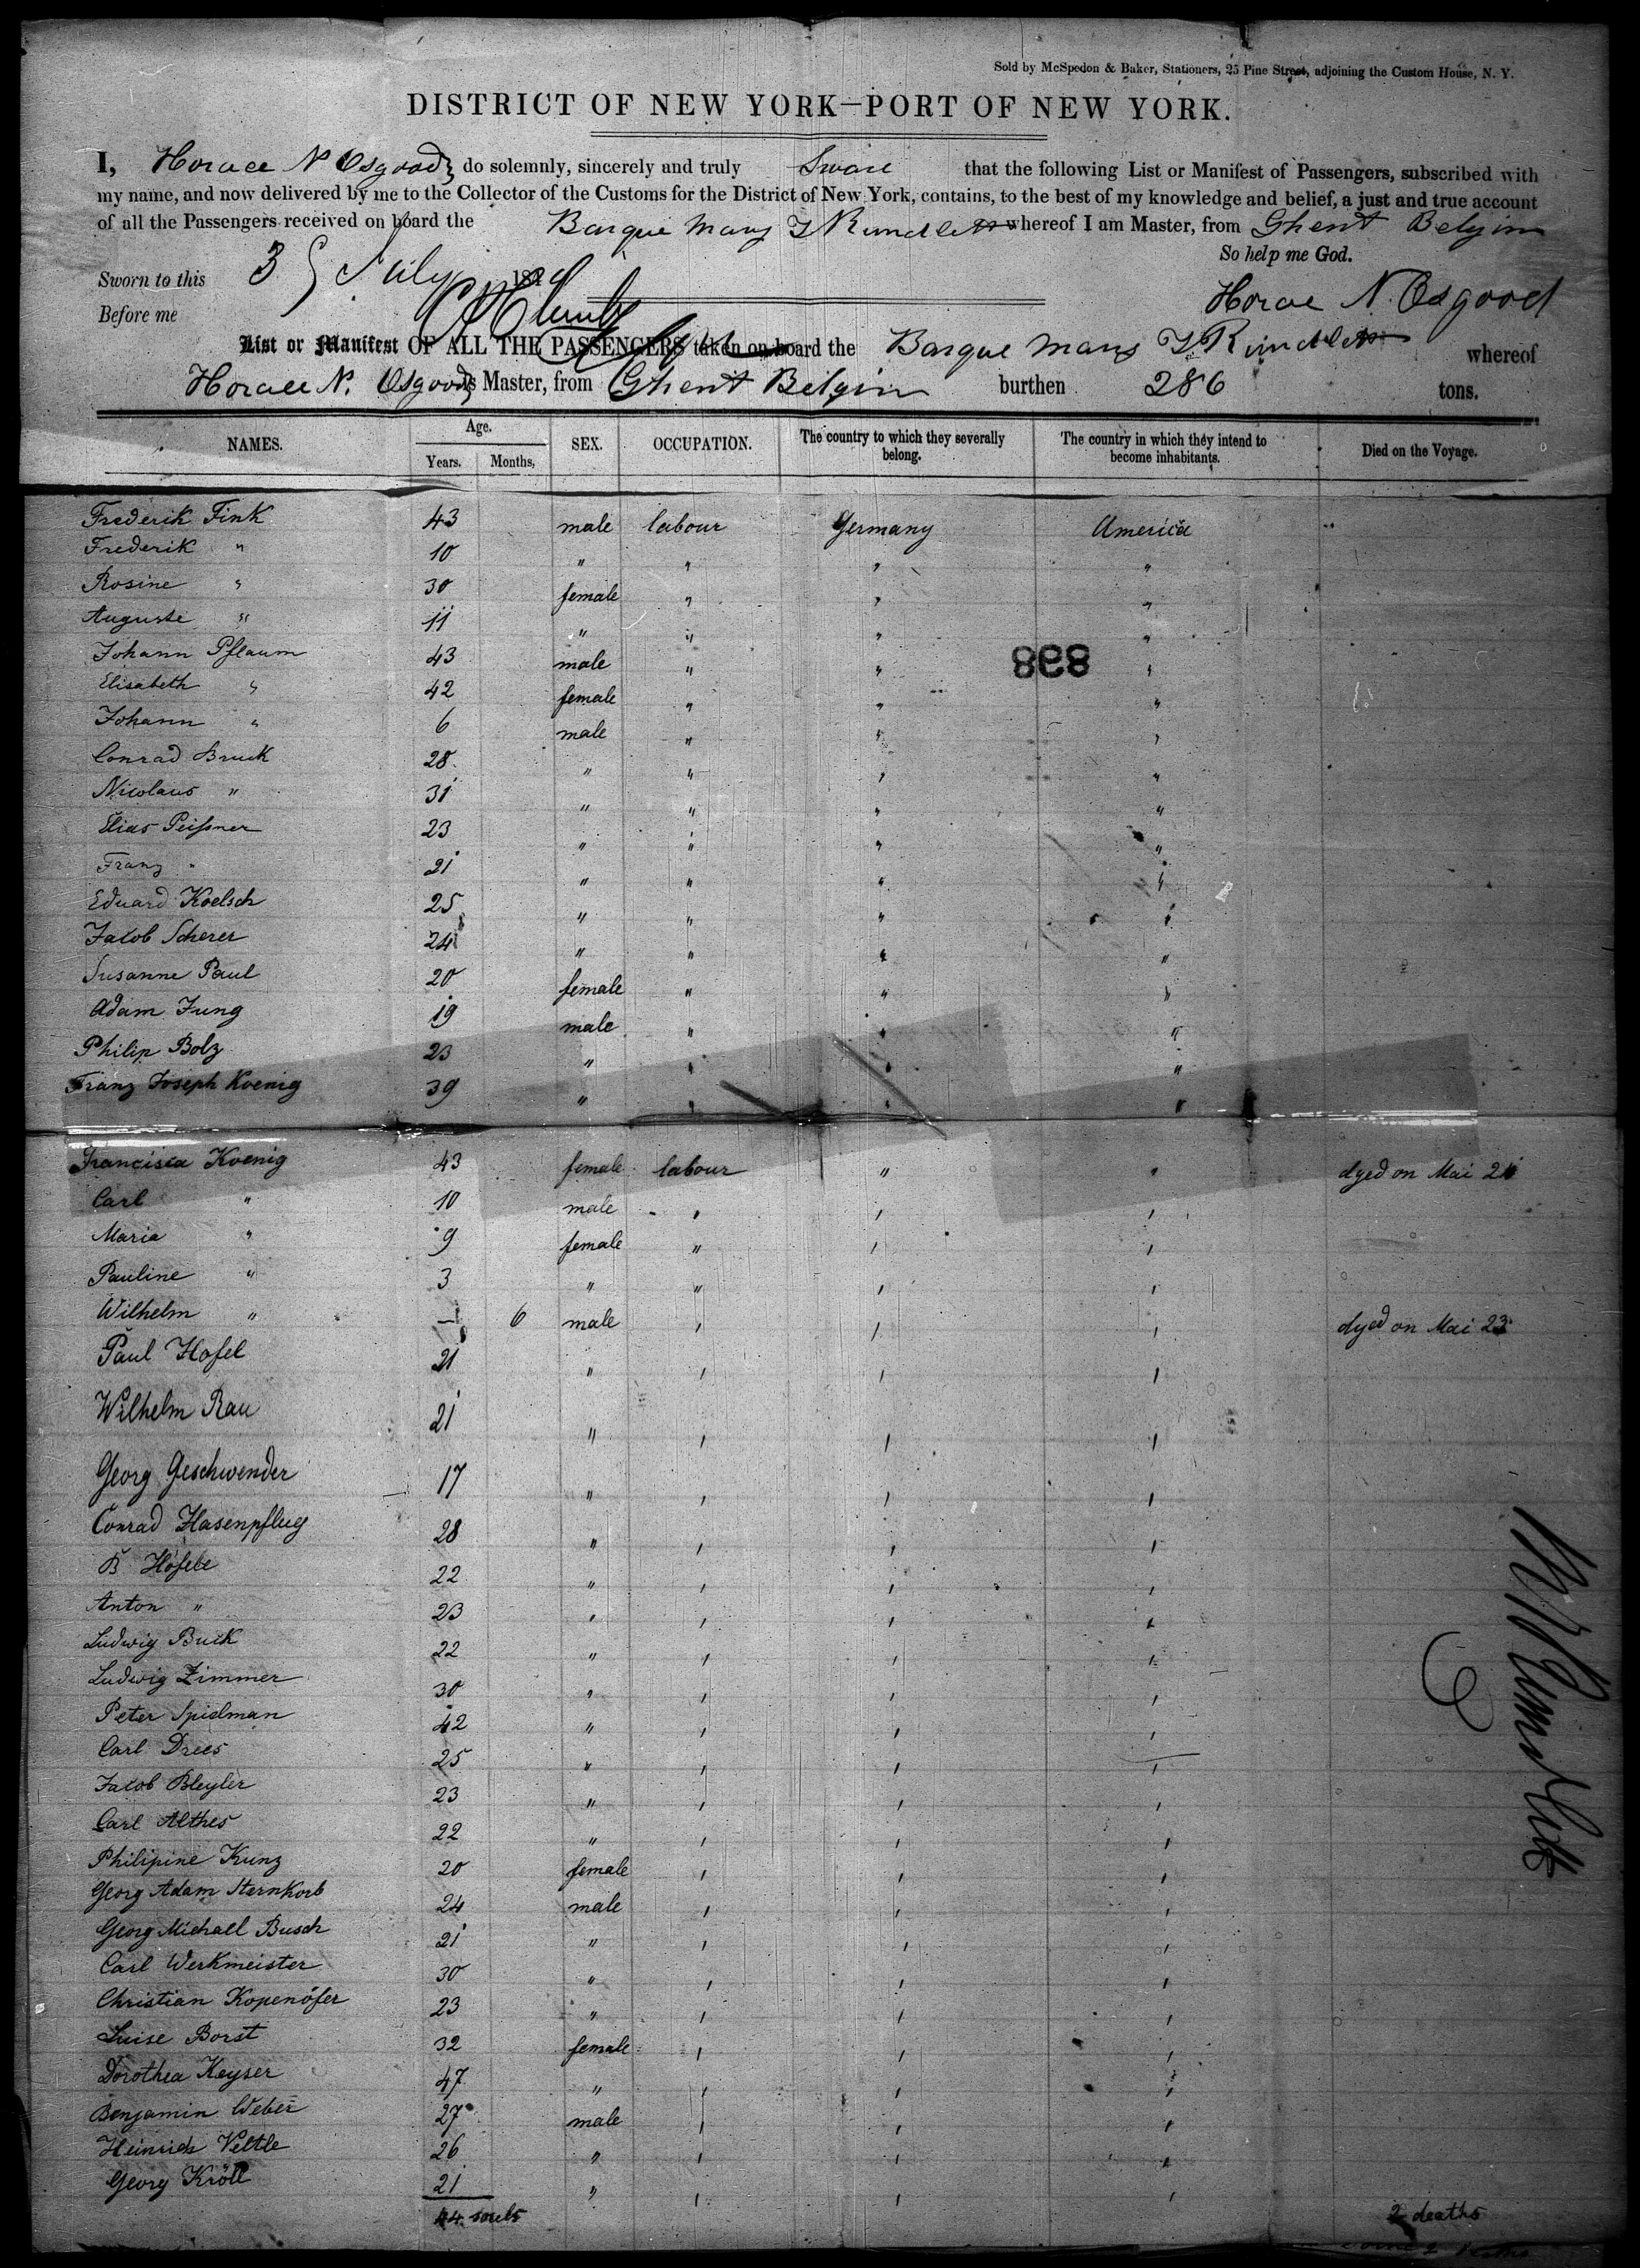 Sold by McSpedon & Baker, Stationers, 25 Pine Street, adjoining the Custom House, N. Y.
DISTRICT OF NEW YORK—PORT OF NEW YORK.
I, Horace N Osgood do solemnly, sincerely and truly Swear that the following List or Manifest of Passengers, subscribed with
my name, and now delivered by me to the Collector of the Customs for the District of New York, contains, to the best of my knowledge and belief, a just and true account
of all the Passengers received on board the Barque Mary T Rundlett whereof I am Master, from Ghent Belgim
So help me God.
Sworn to this 3 July 184
Before me
Horace N. Osgood
List or Manifest OF ALL THE PASSENGERS taken on board the Barque Mary T Rundlett whereof
Horace N. Osgood is Master, from Ghent Belgim burthen 286 tons.
NAMES. Age. SEX. OCCUPATION. The country to which they severally belong. The country in which they intend to become inhabitants. Died on the Voyage.
Years. Months,
Frederik Fink 43 male labour Germany America
Frederik " 10 " " " "
Rosine " 30 female " " "
Auguste " 11 " " " "
Johann Pflaum 43 male " " "
868
Elisabeth " 42 female " " "
Johann " 6 male " " "
Conrad Bruck 28 " " " "
Nicolaus " 31 " " " "
Elias Peißner 23 " " " "
Franz " 21 " " " "
Eduard Koelsch 25 " " " "
Jakob Scherer 24 " " " "
Susanne Paul 20 female " " "
Adam Jung 19 male " " "
Philip Bolz 23 " " " "
Franz Joseph Koenig 39 " " " "
Francisca Koenig 43 female labour " " dyed on Mai 21
Carl " 10 male " " "
Maria " 9 female " " "
Pauline " 3 " " " "
Wilhelm " — 6 male " " " dyed on Mai 23
Paul Hofel 21 " " " "
Wilhelm Rau 21 " " " "
Georg Geschwender 17 " " " "
Conrad Hasenpflug 28 " " " "
B Hofele 22 " " " "
Anton " 23 " " " "
Ludwig Buck 22 " " " "
Ludwig Zimmer 30 " " " "
Peter Spielman 42 " " " "
Carl Drees 25 " " " "
Jacob Bleyler 23 " " " "
Carl Althes 22 " " " "
Philipine Kunz 20 female " " "
Georg Adam Sternkorb 24 male " " "
Georg Michall Busch 21 " " " "
Carl Werkmeister 30 " " " "
Christian Kopenöfer 23 " " " "
Luise Borst 32 female " " "
Dorothea Keyser 47 " " " "
Benjamin Weber 27 male " " "
Heinrich Veltle 26 " " " "
Georg Kröll 21 " " " "
44 souls 2 deaths